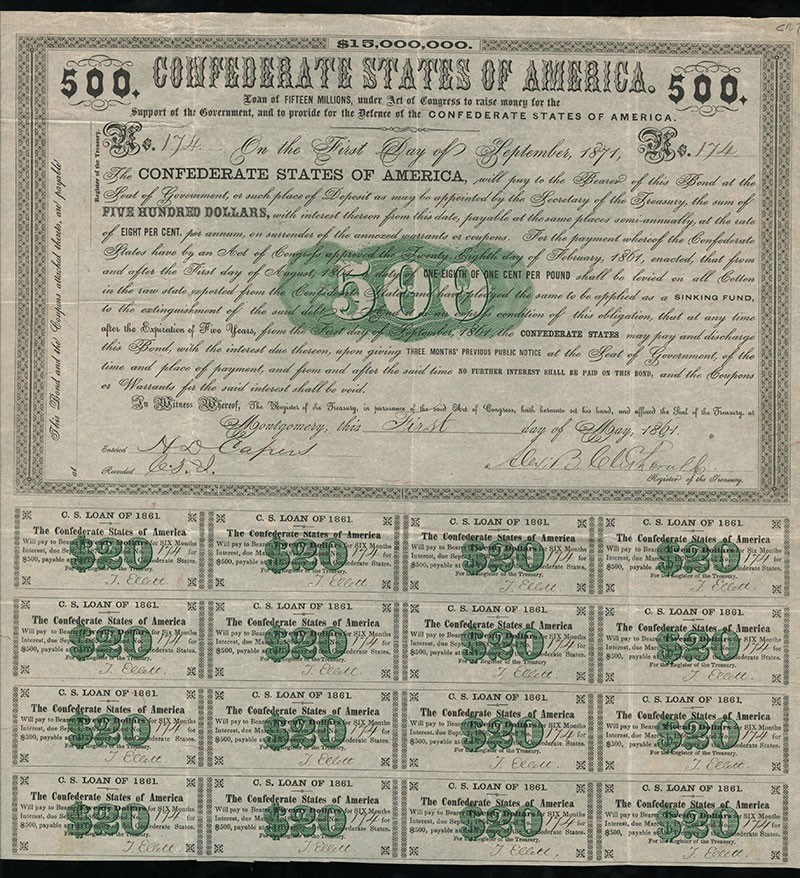 $15,000,000.
500. CONFEDERATE STATES OF AMERICA. 500.
Loan of FIFTEEN MILLIONS, under Act of Congress to raise money for the
Support of the Government, and to provide for the Defence of the CONFEDERATE STATES OF AMERICA.
No. 174 On the First Day of September, 1871, No. 174
The CONFEDERATE STATES OF AMERICA, will pay to the Bearer of this Bond at the
Seat of Government, or such place of Deposit as may be appointed by the Secretary of the Treasury, the sum of
FIVE HUNDRED DOLLARS, with interest thereon from this date, payable at the same places semi-annually, at the rate
of EIGHT PER CENT. per annum, on surrender of the annexed warrants or coupons. For the payment whereof the Confederate
States have by an Act of Congress approved the Twenty Eighth day of February, 1861, enacted, that from
and after the First day of August, 1861 a duty of ONE-EIGHTH OF ONE CENT PER POUND shall be levied on all Cotton
in the raw state exported from the Confederate States, and have pledged the same to be applied as a SINKING FUND,
to the extinguishment of the said debt condition of this obligation, that at any time
after the Expiration of Five Years, from the First day of September, 1861, the CONFEDERATE STATES may pay and discharge
this Bond, with the interest due thereon, upon giving THREE MONTHS' PREVIOUS PUBLIC NOTICE at the Seat of Government, of the
time and place of payment, and from and after the said time NO FURTHER INTEREST SHALL BE PAID ON THIS BOND, and the Coupons
or Warrants for the said interest shall be void.
500
In Witness Whereof, The Register of the Treasury, in pursuance of the said Act of Congress, hath hereunto set his hand, and affixed the Seal of the Treasury, at
Montgomery, this First day of May, 1861
Entered H D Capers
Recorded
Alex. B. Clitherall
Register of the Treasury.
Register of the Treasury.
This Bond and the Coupons attached thereto, are payable
at
C. S. LOAN OF 1861.
The Confederate States of America
Will pay to Bearer Twenty Dollars for SIX Months
Interest, due Sep 174 for
$500, payable at Confederate States.
For the Register of the Treasury.
$20
T. Ellett
C. S. LOAN OF 1861.
The Confederate States of America
Will pay to Bearer Twenty Dollars for SIX Months
Interest, due Mar 174 for
$500, payable at Confederate States.
For the Register of the Treasury.
$20
T. Ellett
C. S. LOAN OF 1861.
The Confederate States of America
Will pay to Bearer Twenty Dollars for SIX Months
Interest, due Sep 174 for
$500, payable at Confederate States.
For the Register of the Treasury.
$20
T. Ellett
C. S. LOAN OF 1861.
The Confederate States of America
Will pay to Bearer Twenty Dollars for SIX Months
Interest, due Mar 174 for
$500, payable at Confederate States.
For the Register of the Treasury.
$20
T. Ellett
C. S. LOAN OF 1861.
The Confederate States of America
Will pay to Bearer Twenty Dollars for SIX Months
Interest, due Sep 174 for
$500, payable at Confederate States.
For the Register of the Treasury.
$20
T. Ellett
C. S. LOAN OF 1861.
The Confederate States of America
Will pay to Bearer Twenty Dollars for SIX Months
Interest, due Mar 174 for
$500, payable at Confederate States.
For the Register of the Treasury.
$20
T. Ellett
C. S. LOAN OF 1861.
The Confederate States of America
Will pay to Bearer Twenty Dollars for SIX Months
Interest, due Sep 174 for
$500, payable at Confederate States.
For the Register of the Treasury.
$20
T. Ellett
C. S. LOAN OF 1861.
The Confederate States of America
Will pay to Bearer Twenty Dollars for SIX Months
Interest, due Mar 174 for
$500, payable at Confederate States.
For the Register of the Treasury.
$20
T. Ellett
C. S. LOAN OF 1861.
The Confederate States of America
Will pay to Bearer Twenty Dollars for SIX Months
Interest, due Sep 174 for
$500, payable at Confederate States.
For the Register of the Treasury.
$20
T. Ellett
C. S. LOAN OF 1861.
The Confederate States of America
Will pay to Bearer Twenty Dollars for SIX Months
Interest, due Mar 174 for
$500, payable at Confederate States.
For the Register of the Treasury.
$20
T. Ellett
C. S. LOAN OF 1861.
The Confederate States of America
Will pay to Bearer Twenty Dollars for SIX Months
Interest, due Sep 174 for
$500, payable at Confederate States.
For the Register of the Treasury.
$20
T. Ellett
C. S. LOAN OF 1861.
The Confederate States of America
Will pay to Bearer Twenty Dollars for SIX Months
Interest, due Mar 174 for
$500, payable at Confederate States.
For the Register of the Treasury.
$20
T. Ellett
C. S. LOAN OF 1861.
The Confederate States of America
Will pay to Bearer Twenty Dollars for SIX Months
Interest, due Sep 174 for
$500, payable at Confederate States.
For the Register of the Treasury.
$20
T. Ellett
C. S. LOAN OF 1861.
The Confederate States of America
Will pay to Bearer Twenty Dollars for SIX Months
Interest, due Mar 174 for
$500, payable at Confederate States.
For the Register of the Treasury.
$20
T. Ellett
C. S. LOAN OF 1861.
The Confederate States of America
Will pay to Bearer Twenty Dollars for SIX Months
Interest, due Sep 174 for
$500, payable at Confederate States.
For the Register of the Treasury.
$20
T. Ellett
C. S. LOAN OF 1861.
The Confederate States of America
Will pay to Bearer Twenty Dollars for SIX Months
Interest, due Mar 174 for
$500, payable at Confederate States.
For the Register of the Treasury.
$20
T. Ellett